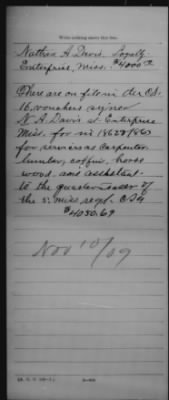 Write nothing above this line.
Nathan A Davis. Loyalty
Enterprise, Miss. $4000.00
There are on file in the Od.
16 vouchers signed
N. A. Davis at Enterprise
Miss. for in 1862 &/863
for services as Carpenter,
lumber, coffins, horse
wood and assistant
to the quartermaster of
the 5. Miss regt. CSA
$4050.69
Nov 10/09